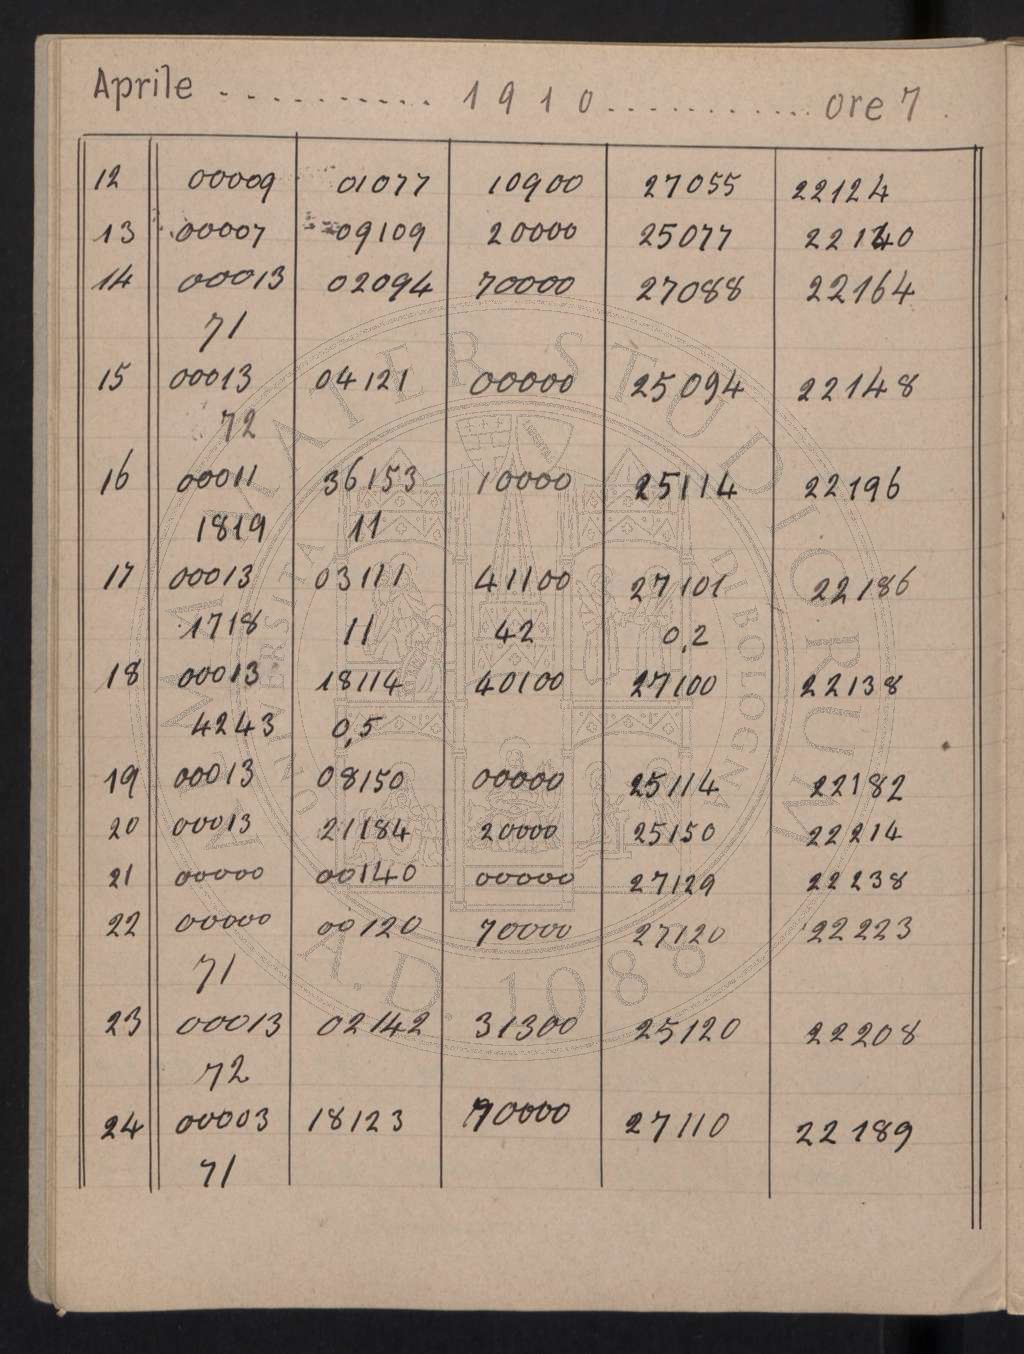 Aprile . . . . . . . . . . . 1910 . . . . . . . . . . . ore 7 .
12 00009 01077 10900 27055 22124
13 00007 09109 20000 25077 22140
14 00013 02094 70000 27088 22164
71
15 00013 04121 00000 25094 22148
72
16 00011 36153 10000 25114 22196
1819 11
17 00013 03111 41100 27101 22186
1718 11 42 0,2
18 00013 18114 40100 27100 22138
4243 0,5
19 00013 08150 00000 25114 22182
20 00013 21184 20000 25150 22214
21 00000 00140 00000 27129 22238
22 00000 00120 70000 27120 22223
71
23 00013 02142 31300 25120 22208
72
24 00003 18123 70000 27110 22189
71
ALMA MATER STUDIORUM
A.D. 1088